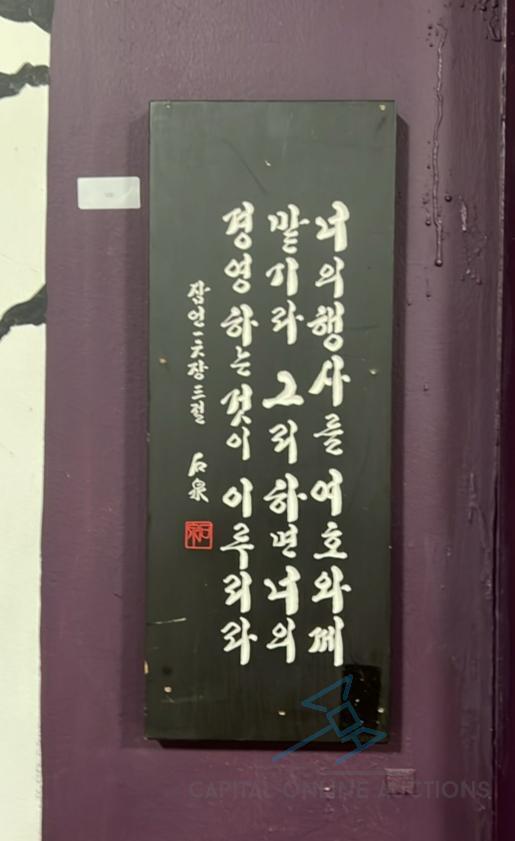 너의 행사를 여호와께
맡기라 그리하면 너의
경영하는 것이 이루리라
잠언 一六장 三절 石泉
CAPITAL ONLINE AUCTIONS